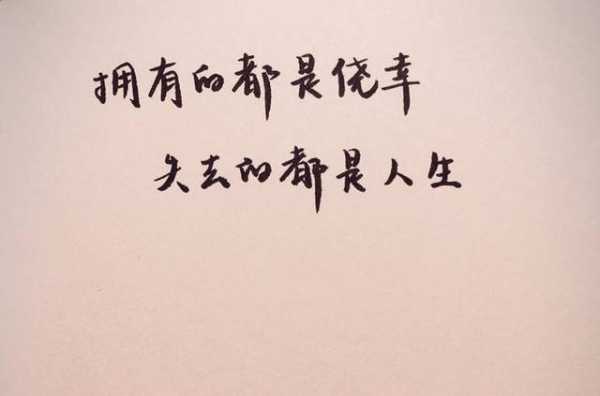 拥有的都是侥幸
失去的都是人生